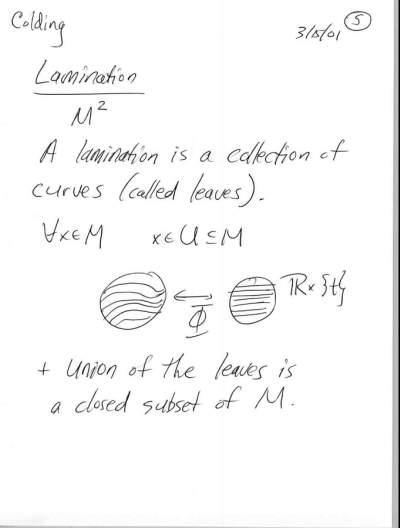 Colding
3/8/01 5
Lamination
M²
A lamination is a collection of
curves (called leaves).
∀x∈M x∈U⊆M
Φ ℝ×{t}
+ union of the leaves is
a closed subset of M.